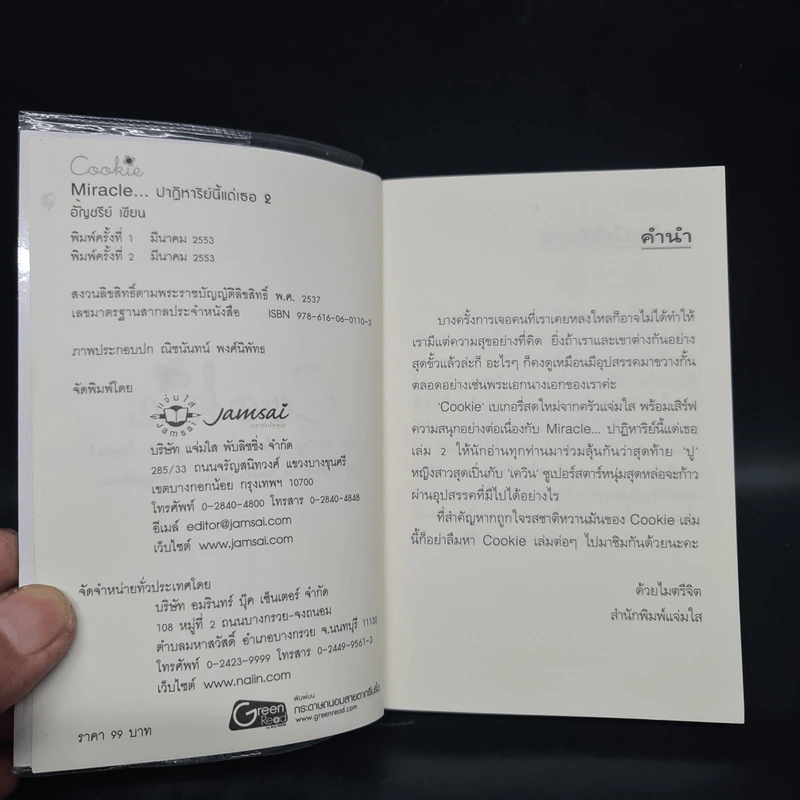 Cookie
Miracle... ปาฏิหาริย์นี้แด่เธอ 2
อัญชรีย์ เขียน
พิมพ์ครั้งที่ 1 มีนาคม 2553
พิมพ์ครั้งที่ 2 มีนาคม 2553
สงวนลิขสิทธิ์ตามพระราชบัญญัติลิขสิทธิ์ พ.ศ. 2537
เลขมาตรฐานสากลประจำหนังสือ ISBN 978-616-06-0110-3
ภาพประกอบปก ณิชนันทน์ พงศ์นิพัทธ
จัดพิมพ์โดย
แจ่มใส
Jamsai
Jamsai
บริษัท แจ่มใส พับลิชชิ่ง จำกัด
285/33 ถนนจรัญสนิทวงศ์ แขวงบางขุนศรี
เขตบางกอกน้อย กรุงเทพฯ 10700
โทรศัพท์ 0-2840-4800 โทรสาร 0-2840-4848
อีเมล์ editor@jamsai.com
เว็บไซต์ www.jamsai.com
จัดจำหน่ายทั่วประเทศโดย
บริษัท อมรินทร์ บุ๊ค เซ็นเตอร์ จำกัด
108 หมู่ที่ 2 ถนนบางกรวย-จงถนอม
ตำบลมหาสวัสดิ์ อำเภอบางกรวย จ.นนทบุรี 11130
โทรศัพท์ 0-2423-9999 โทรสาร 0-2449-9561-3
เว็บไซต์ www.naiin.com
Green Read
พิมพ์บน
กระดาษถนอมสายตากรีนรี้ด
www.greenread.com
ราคา 99 บาท
คำนำ
บางครั้งการเจอคนที่เราเคยหลงใหลก็อาจไม่ได้ทำให้
เรามีแต่ความสุขอย่างที่คิด ยิ่งถ้าเราและเขาต่างกันอย่าง
สุดขั้วแล้วล่ะก็ อะไรๆ ก็คงดูเหมือนมีอุปสรรคมาขวางกั้น
ตลอดอย่างเช่นพระเอกนางเอกของเราค่ะ
'Cookie' เบเกอรี่สดใหม่จากครัวแจ่มใส พร้อมเสิร์ฟ
ความสนุกอย่างต่อเนื่องกับ Miracle... ปาฏิหาริย์นี้แด่เธอ
เล่ม 2 ให้นักอ่านทุกท่านมาร่วมลุ้นกันว่าสุดท้าย 'ปู'
หญิงสาวสุดเปิ่นกับ 'เควิน' ซูเปอร์สตาร์หนุ่มสุดหล่อจะก้าว
ผ่านอุปสรรคที่มีไปได้อย่างไร
ที่สำคัญหากถูกใจรสชาติหวานมันของ Cookie เล่ม
นี้ก็อย่าลืมหา Cookie เล่มต่อๆ ไปมาชิมกันด้วยนะคะ
ด้วยไมตรีจิต
สำนักพิมพ์แจ่มใส